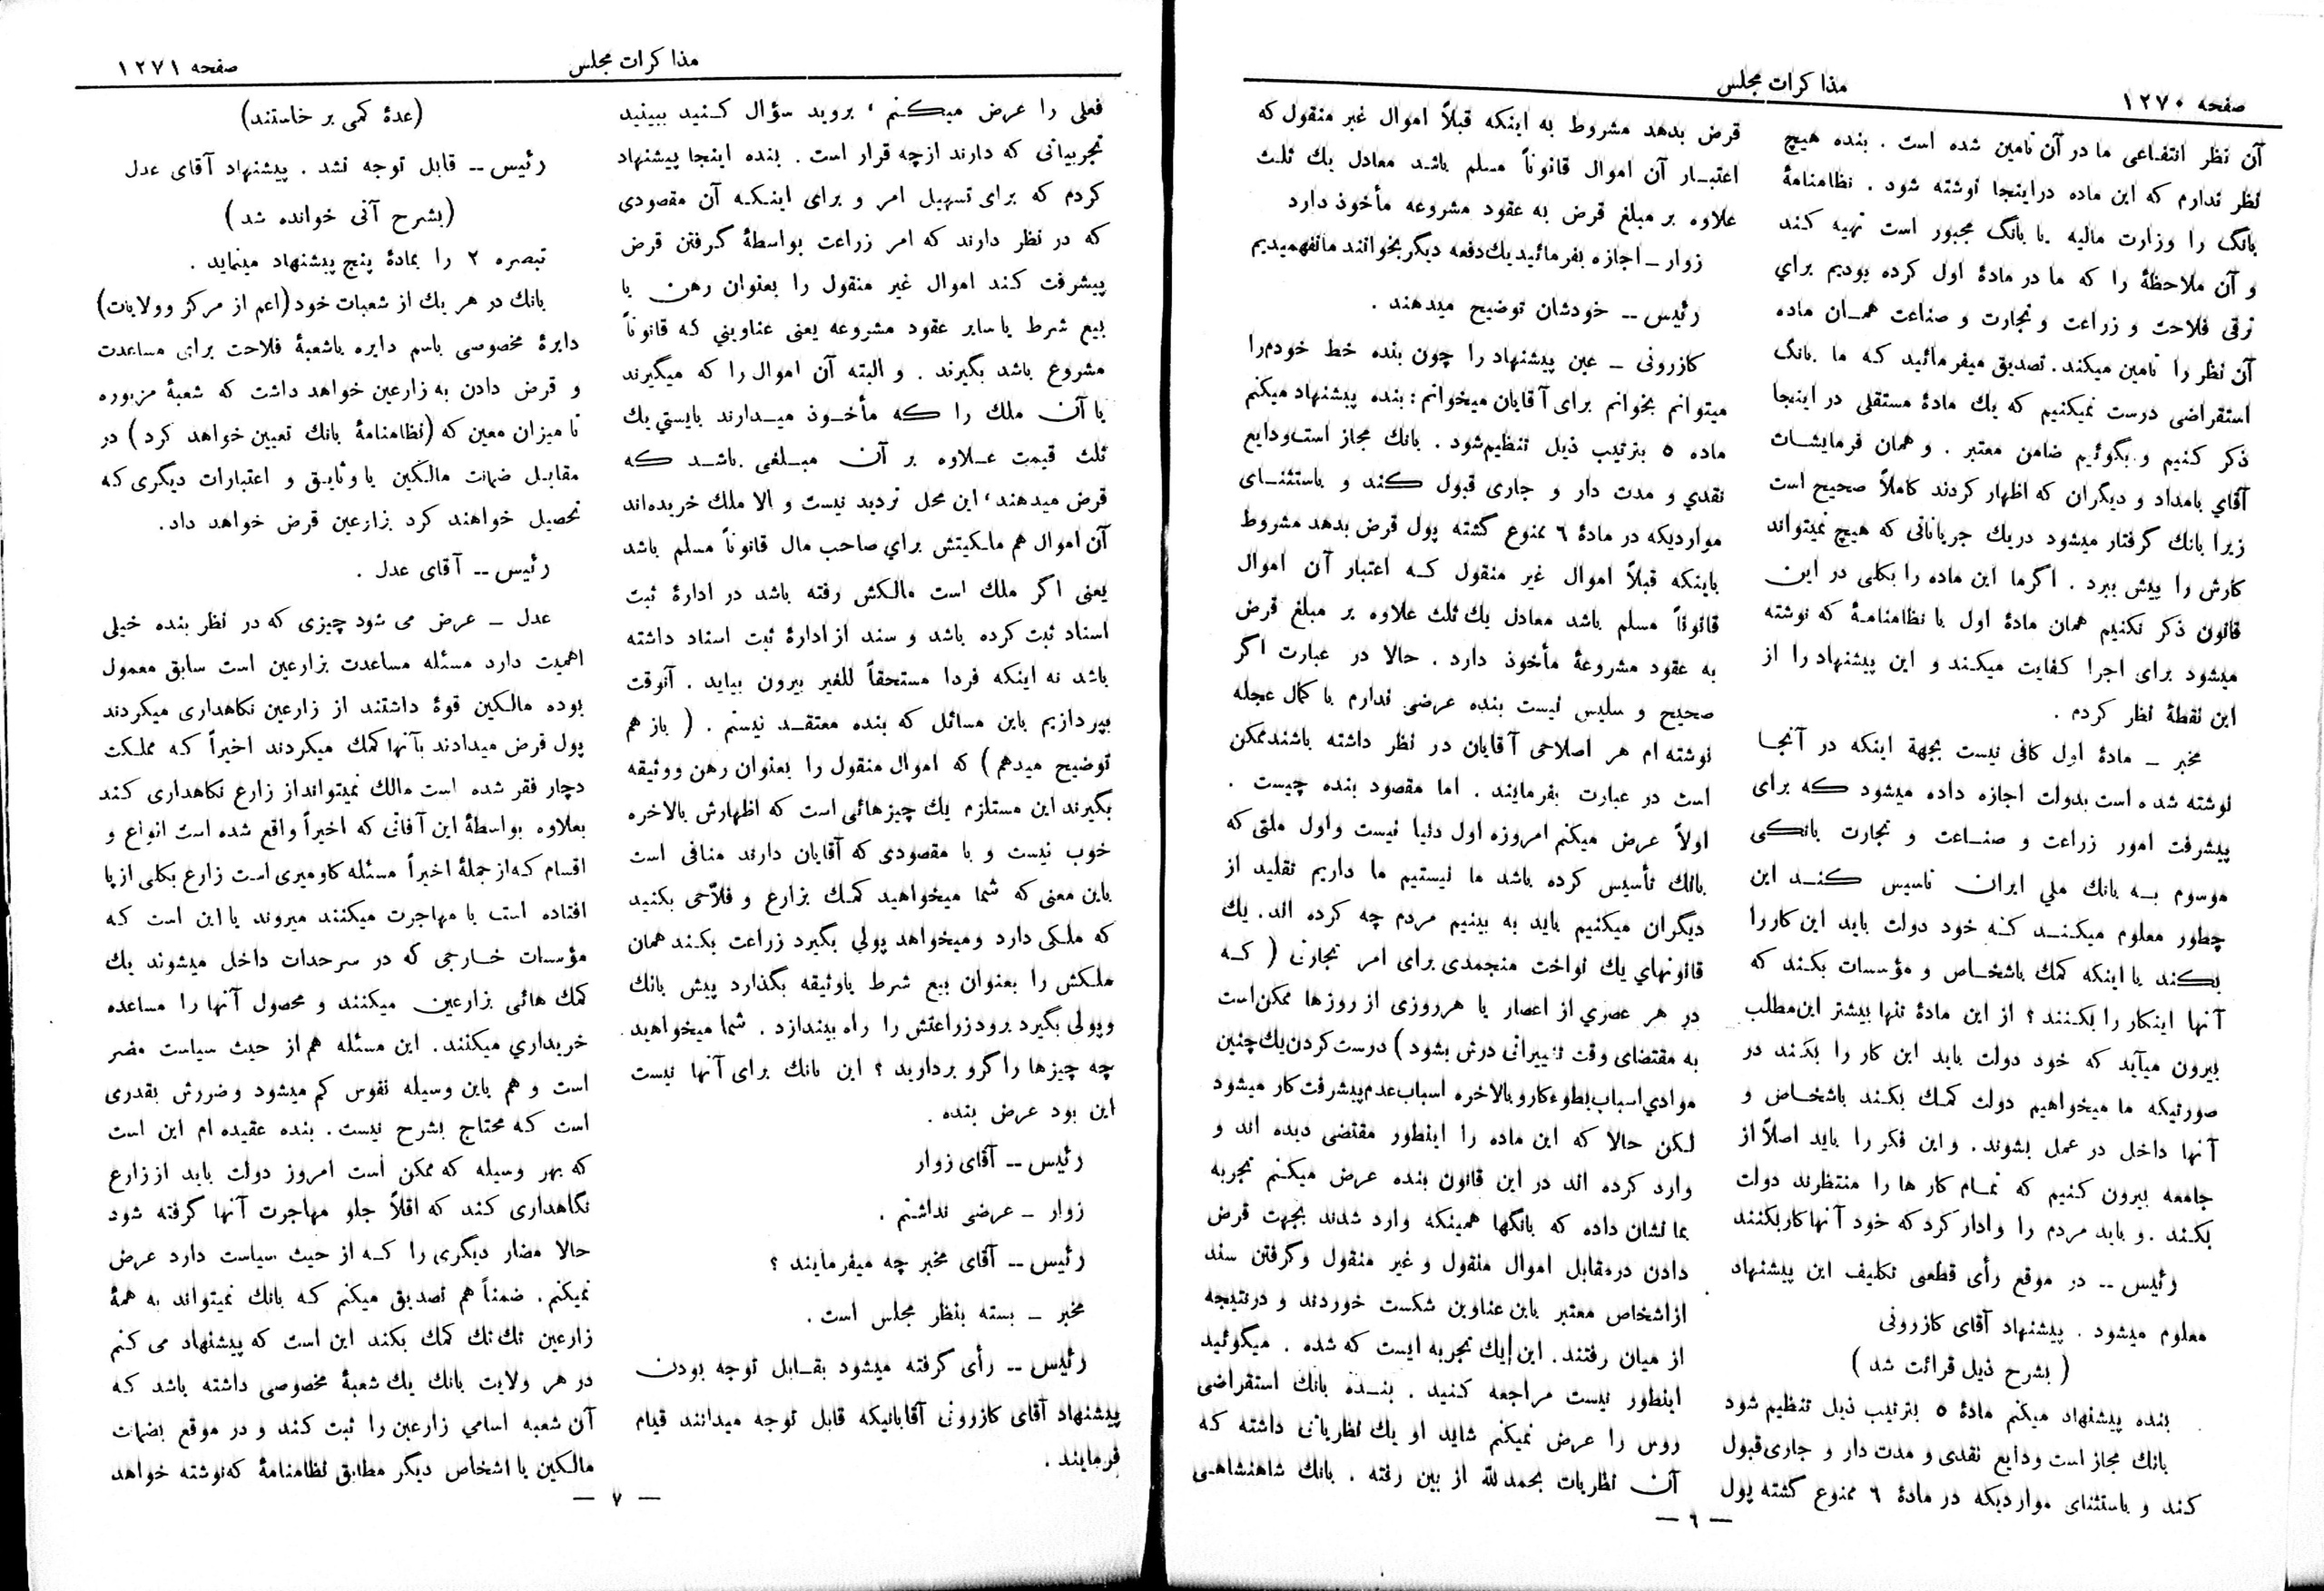 صفحه ۱۲۷۰
مذاکرات مجلس
آن نظر انتفاعی ما در آن تامین شده است . بنده هیچ
نظر ندارم که این ماده دراینجا نوشته شود . نظامنامهٔ
بانک را وزارت مالیه با بانک مجبور است تهیه کند
و آن ملاحظهٔ را که ما در مادهٔ اول کرده بودیم برای
ترقی فلاحت و زراعت و تجارت و صناعت همان ماده
آن نظر را تامین میکند . تصدیق میفرمائید که ما بانک
استقراضی درست نمیکنیم که یك مادهٔ مستقلی در اینجا
ذکر کنیم و بگوئیم ضامن معتبر . و همان فرمایشات
آقای بامداد و دیگران که اظهار کردند کاملاً صحیح است
زیرا بانك گرفتار میشود دریك جریاناتی که هیچ نمیتواند
کارش را پیش ببرد . اگرما این ماده را بکلی در این
قانون ذکر نکنیم همان مادهٔ اول با نظامنامهٔ که نوشته
میشود برای اجرا کفایت میکند و این پیشنهاد را از
این نقطهٔ نظر کردم .
مخبر ـ مادهٔ اول کافی نیست بجهة اینکه در آنجا
نوشته شده است بدولت اجازه داده میشود که برای
پیشرفت امور زراعت و صناعت و تجارت بانکی
موسوم به بانك ملی ایران تاسیس کند این
چطور معلوم میکند که خود دولت باید این کار را
بکند یا اینکه کمك باشخاص و مؤسسات بکند که
آنها اینکار را بکنند ؟ از این مادهٔ تنها بیشتر این مطلب
بیرون میآید که خود دولت باید این کار را بکند در
صورتیکه ما میخواهیم دولت کمك بکند باشخاص و
آنها داخل در عمل بشوند . و این فکر را باید اصلاً از
جامعه بیرون کنیم که تمام کار ها را منتظرند دولت
بکند . و باید مردم را وادار کرد که خود آنها کار بکنند
رئیس -- در موقع رأی قطعی تکلیف این پیشنهاد
معلوم میشود . پیشنهاد آقای کازرونی
( بشرح ذیل قرائت شد )
بنده پیشنهاد میکنم مادهٔ ٥ بترتیب ذیل تنظیم شود
بانك مجاز است ودایع نقدی و مدت دار و جاری قبول
کند و باستثنای مواردیکه در مادهٔ ٦ ممنوع گشته پول
قرض بدهد مشروط به اینکه قبلاً اموال غیر منقول که
اعتبار آن اموال قانوناً مسلم باشد معادل یك ثلث
علاوه بر مبلغ قرض به عقود مشروعه مأخوذ دارد
زوار ـ اجازه بفرمائید یك دفعه دیگر بخوانند ما نفهمیدیم
رئیس -- خودشان توضیح میدهند .
کازرونی ـ عین پیشنهاد را چون بنده خط خودم را
میتوانم بخوانم برای آقایان میخوانم : بنده پیشنهاد میکنم
ماده ٥ بترتیب ذیل تنظیم شود . بانك مجاز است ودایع
نقدی و مدت دار و جاری قبول کند و باستثنای
مواردیکه در مادهٔ ٦ ممنوع گشته پول قرض بدهد مشروط
باینکه قبلاً اموال غیر منقول که اعتبار آن اموال
قانوناً مسلم باشد معادل یك ثلث علاوه بر مبلغ قرض
به عقود مشروعهٔ مأخوذ دارد . حالا در عبارت اگر
صحیح و سلیس نیست بنده عرضی ندارم با کمال عجله
نوشته ام هر اصلاحی آقایان در نظر داشته باشند ممکن
است در عبارت بفرمایند . اما مقصود بنده چیست .
اولاً عرض میکنم امروزه اول دنیا نیست و اول ملتی که
بانك تأسیس کرده باشد ما نیستیم ما داریم تقلید از
دیگران میکنیم باید به بینیم مردم چه کرده اند . یك
قانونهای یك نواخت منجمدی برای امر تجارتی ( که
در هر عصری از اعصار یا هر روزی از روزها ممکن است
به مقتضای وقت تغییراتی درش بشود ) درست کردن یك چنین
موادی اسباب بطوء کار و بالاخره اسباب عدم پیشرفت کار میشود
لکن حالا که این ماده را اینطور مقتضی دیده اند و
وارد کرده اند در این قانون بنده عرض میکنم تجربه
بما نشان داده که بانگها همینکه وارد شدند بجهت قرض
دادن در مقابل اموال منقول و غیر منقول و گرفتن سند
از اشخاص معتبر باین عناوین شکست خوردند و در نتیجه
از میان رفتند . این یك تجربه ایست که شده . میگوئید
اینطور نیست مراجعه کنید . بنده بانك استقراضی
روس را عرض نمیکنم شاید او یك نظریاتی داشته که
آن نظریات بحمدلله از بین رفته . بانك شاهنشاهی
— ٦ —
مذاکرات مجلس
صفحه ۱۲۷۱
فعلی را عرض میکنم ، بروید سؤال کنید ببینید
تجربیاتی که دارند ازچه قرار است . بنده اینجا پیشنهاد
کردم که برای تسهیل امر و برای اینکه آن مقصودی
که در نظر دارند که امر زراعت بواسطهٔ گرفتن قرض
پیشرفت کند اموال غیر منقول را بعنوان رهن یا
بیع شرط یا سایر عقود مشروعه یعنی عناوینی که قانوناً
مشروع باشد بگیرند . و البته آن اموال را که میگیرند
یا آن ملك را که مأخوذ میدارند بایستی یك
ثلث قیمت علاوه بر آن مبلغی باشد که
قرض میدهند ، این محل تردید نیست و الا ملك خریده‌اند
آن اموال هم مالکیتش برای صاحب مال قانوناً مسلم باشد
یعنی اگر ملك است مالکش رفته باشد در ادارهٔ ثبت
اسناد ثبت کرده باشد و سند از ادارهٔ ثبت اسناد داشته
باشد نه اینکه فردا مستحقاً للغیر بیرون بیاید . آنوقت
بپردازیم باین مسائل که بنده معتقد نیستم . ( باز هم
توضیح میدهم ) که اموال منقول را بعنوان رهن و وثیقه
بگیرند این مستلزم یك چیزهائی است که اظهارش بالاخره
خوب نیست و با مقصودی که آقایان دارند منافی است
باین معنی که شما میخواهید کمك بزارع و فلاحی بکنید
که ملکی دارد و میخواهد پولی بگیرد زراعت بکند همان
ملکش را بعنوان بیع شرط یا وثیقه بگذارد پیش بانك
و پولی بگیرد برود زراعتش را راه بیندازد . شما میخواهید
چه چیزها را گرو بردارید ؟ این بانك برای آنها نیست
این بود عرض بنده .
رئیس -- آقای زوار
زوار ـ عرضی نداشتم .
رئیس -- آقای مخبر چه میفرمایند ؟
مخبر ـ بسته بنظر مجلس است .
رئیس -- رأی گرفته میشود بقابل توجه بودن
پیشنهاد آقای کازرونی آقایانیکه قابل توجه میدانند قیام
فرمایند .
(عدهٔ کمی بر خاستند)
رئیس -- قابل توجه نشد . پیشنهاد آقای عدل
(بشرح آتی خوانده شد )
تبصره ۲ را بمادهٔ پنج پیشنهاد مینماید .
بانك در هر یك از شعبات خود (اعم از مرکز وولایات)
دایرهٔ مخصوصی باسم دایره یا شعبهٔ فلاحت برای مساعدت
و قرض دادن به زارعین خواهد داشت که شعبهٔ مزبوره
تا میزان معین که (نظامنامهٔ بانك تعیین خواهد کرد ) در
مقابل ضمانت مالکین یا وثایق و اعتبارات دیگری که
تحصیل خواهند کرد بزارعین قرض خواهد داد .
رئیس -- آقای عدل .
عدل ـ عرض می شود چیزی که در نظر بنده خیلی
اهمیت دارد مسئله مساعدت بزارعین است سابق معمول
بوده مالکین قوهٔ داشتند از زارعین نگاهداری میکردند
پول قرض میدادند بآنها کمك میکردند اخیراً که مملکت
دچار فقر شده است مالك نمیتواند از زارع نگاهداری کند
بعلاوه بواسطهٔ این آفاتی که اخیراً واقع شده است انواع و
اقسام که از جملهٔ اخیراً مسئله گاومیری است زارع بکلی از پا
افتاده است یا مهاجرت میکنند میروند یا این است که
مؤسسات خارجی که در سرحدات داخل میشوند یك
کمك هائی بزارعین میکنند و محصول آنها را مساعده
خریداری میکنند . این مسئله هم از حیث سیاست مضر
است و هم باین وسیله نفوس کم میشود و ضررش بقدری
است که محتاج بشرح نیست . بنده عقیده ام این است
که بهر وسیله که ممکن است امروز دولت باید از زارع
نگاهداری کند که اقلاً جلو مهاجرت آنها گرفته شود
حالا مضار دیگری را که از حیث سیاست دارد عرض
نمیکنم . ضمناً هم تصدیق میکنم که بانك نمیتواند به همهٔ
زارعین تك تك کمك بکند این است که پیشنهاد می کنم
در هر ولایت بانك یك شعبهٔ مخصوصی داشته باشد که
آن شعبه اسامی زارعین را ثبت کند و در موقع بضمانت
مالکین یا اشخاص دیگر مطابق نظامنامهٔ که نوشته خواهد
— ۷ —